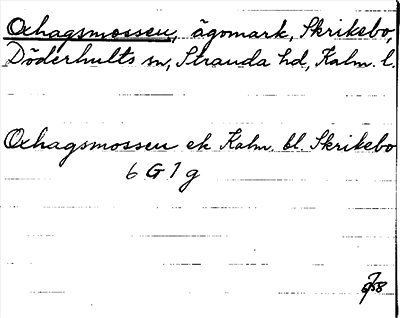 Oxhagsmossen, ägomark, Skrikebo,
Döderhults sn, Stranda hd, Kalm. l.
Oxhagsmossen ek Kalm. bl. Skrikebo
6 G 1 g